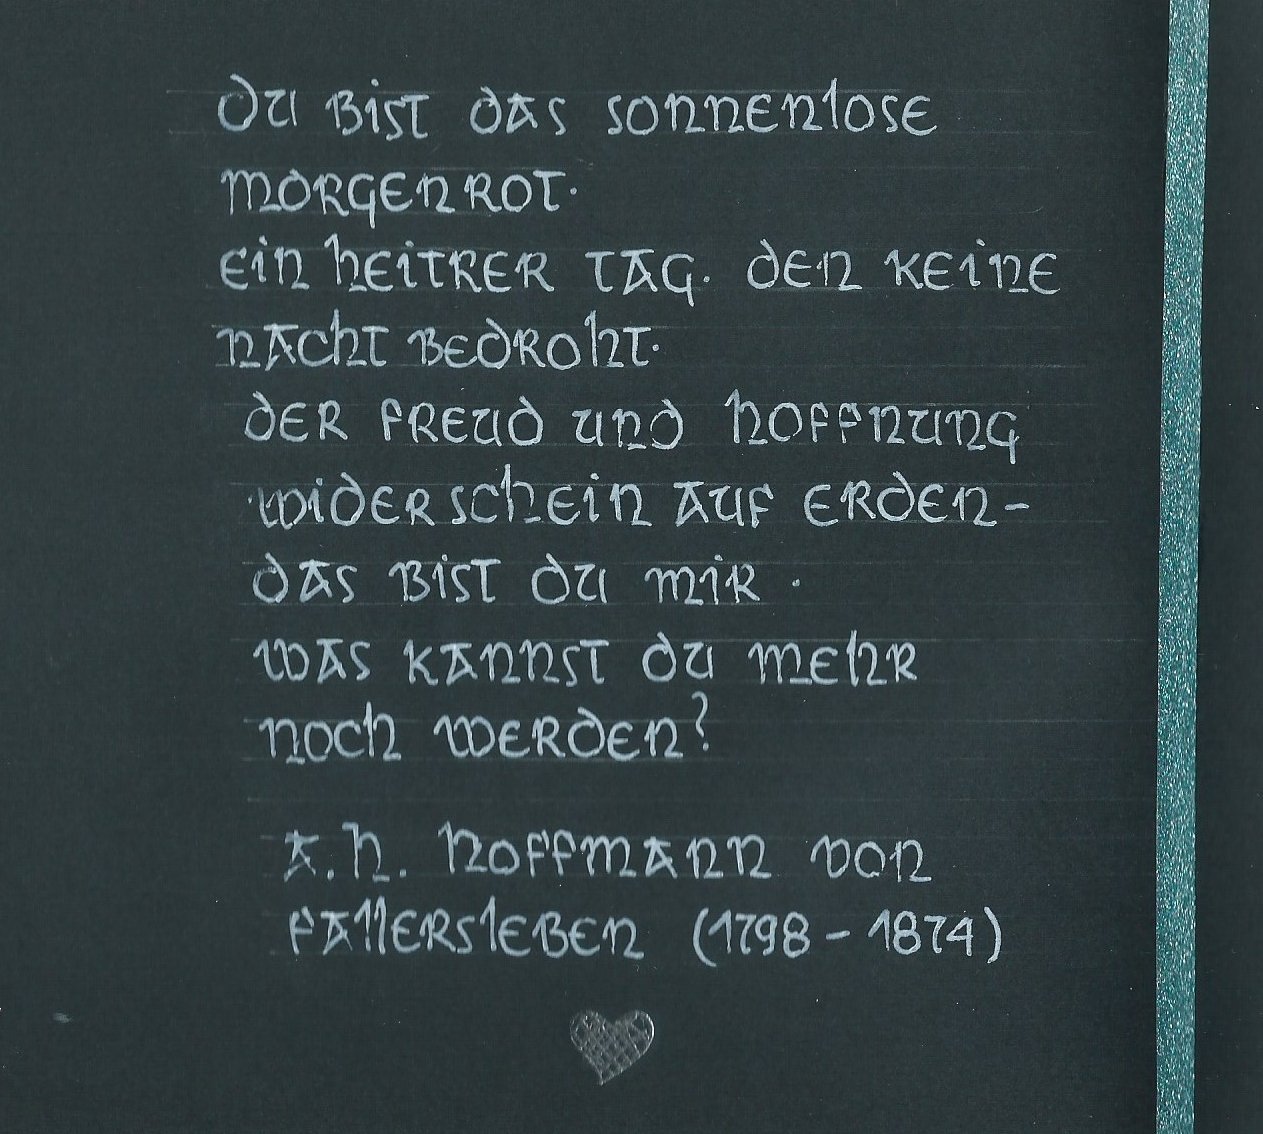 Du bist das sonnenlose
Morgenrot·
ein heitrer Tag· den keine
Nacht bedroht·
der Freud und Hoffnung
Widerschein auf Erden-
das bist du mir ·
was kannst du mehr
noch werden?
A.H. Hoffmann von
Fallersleben (1798 - 1874)